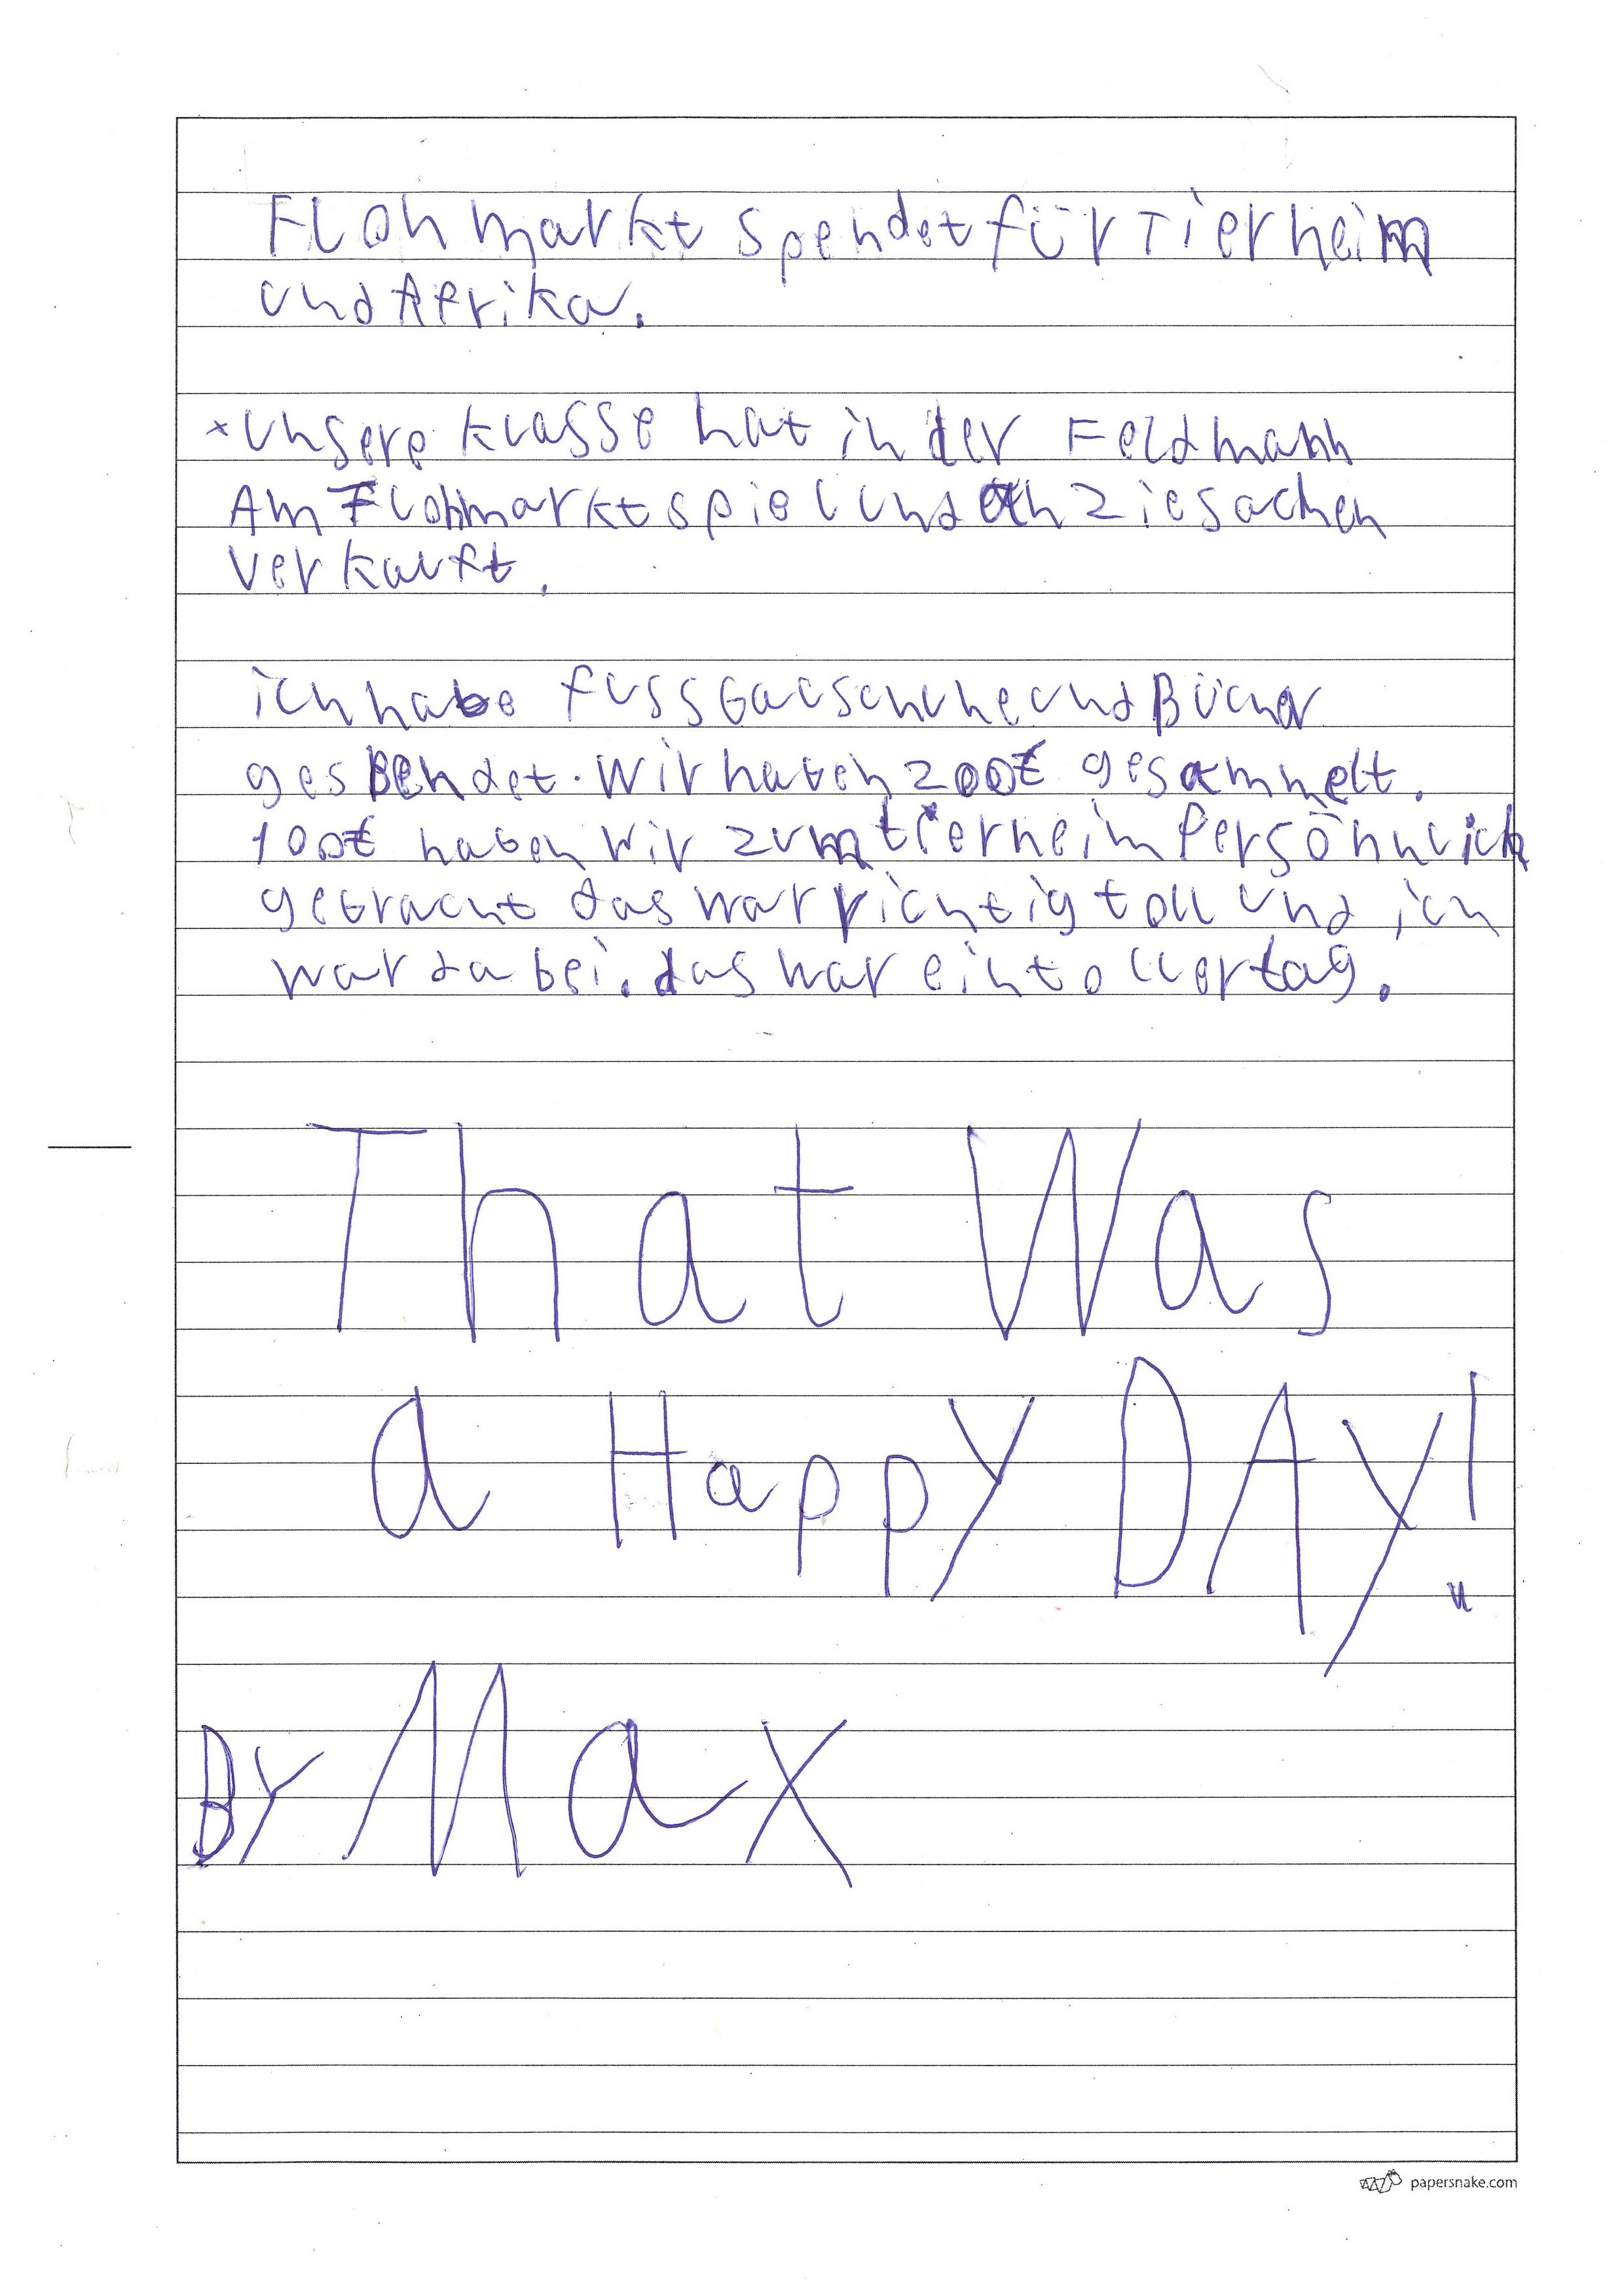 Flohmarkt spendet für Tierheim
und Afrika.
× unsere klasse hat in der Feldmann
Am Flohmarkt spiel und anziesachen
verkauft.
ich habe fussGalschuhe und Bücher
gesBendet. Wir haben 200€ gesammelt.
100€ haben wir zum tierheim Persöhnlich
gebracht das war richtig toll und ich
war dabei. das war ein toller tag.
That Was
a Happy DAY!
BY Max
papersnake.com